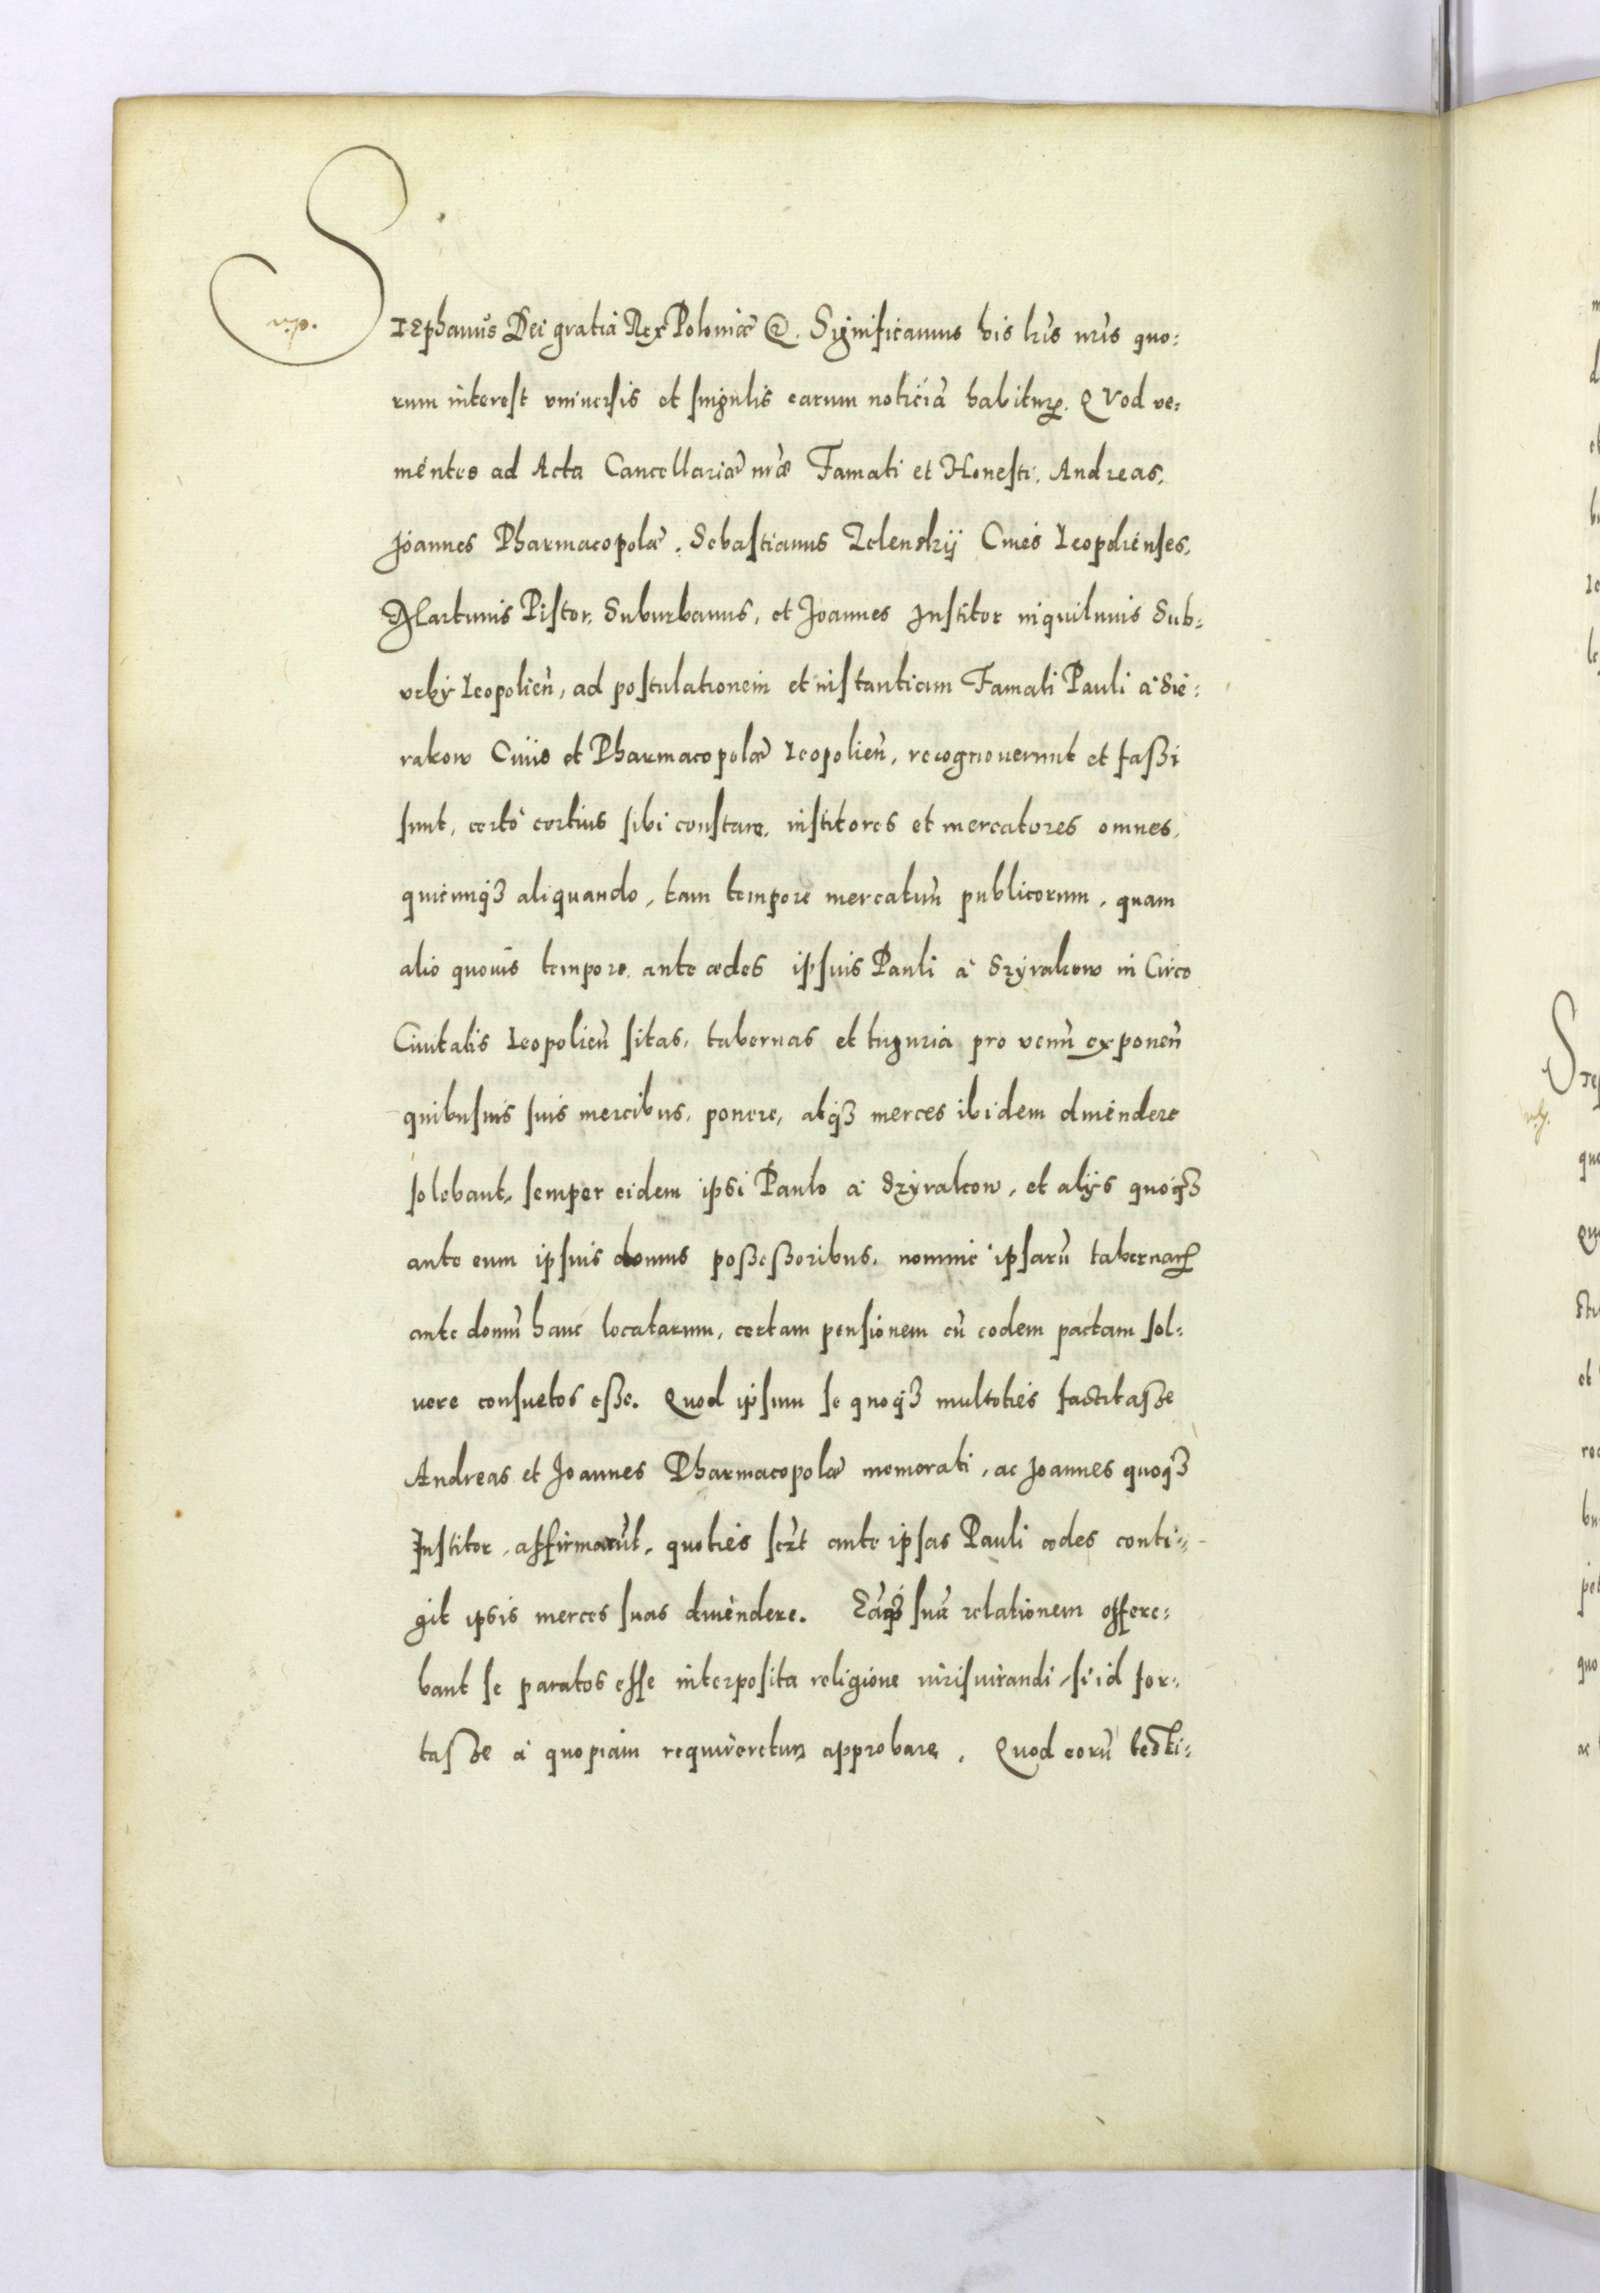 STEphanus Dei gratia Rex Poloniæ @. Significamus his lris nris quo:
rum interest vniuersis et singulis earum noticiã habituꝝ. QVod ve:
nientes ad Acta Cancellariæ nræ Famati et Honesti, Andreas,
Joannes Pharmacopolæ, Sebastianus Zelenskij Ciues Leopolienses,
Martinus Pistor, Suburbanus, et Joannes Institor inquilinus Sub:
vrbÿ Leopolien̄, ad postulationem et instantiam Famati Pauli à Sie:
rakow Ciuis et Pharmacopolæ Leopolien̄, recognouerunt et faßi
sunt, certò certius sibi constare, institores et mercatores omnes,
quicunqꝫ aliquando, tam tempore mercatuũ publicorum, quam
alio quouis tempore, ante ædes ipsius Pauli à Szÿrakow in Circo
Ciuitatis Leopolien̄ sitas, tabernas et tuguria pro venũ exponen̄
quibusuis suis mercibus, ponere, atqꝫ merces ibidem diuendere
solebant, semper eidem ipsi Paulo à Szÿrakow, et alijs quoqꝫ
ante eum ipsius domus poßeßoribus, nomine ipsarũ tabernaꝝ
ante domũ hanc locatarum, certam pensionem cũ eodem pactam sol:
uere consuetos eße. Quod ipsum se quoqꝫ multoties factitaße
Andreas et Joannes Pharmacopolæ memorati, ac Joannes quoqꝫ
Institor, affirmarũt, quoties ante ipsas Pauli ædes conti:
git ipsis merces suas diuendere. Eãqꝫ suã relationem offere:
bant se paratos esse interposita religione iurisiurandi, si id for:
taße à quopiam requireretur, approbare. Quod eorũ testi: